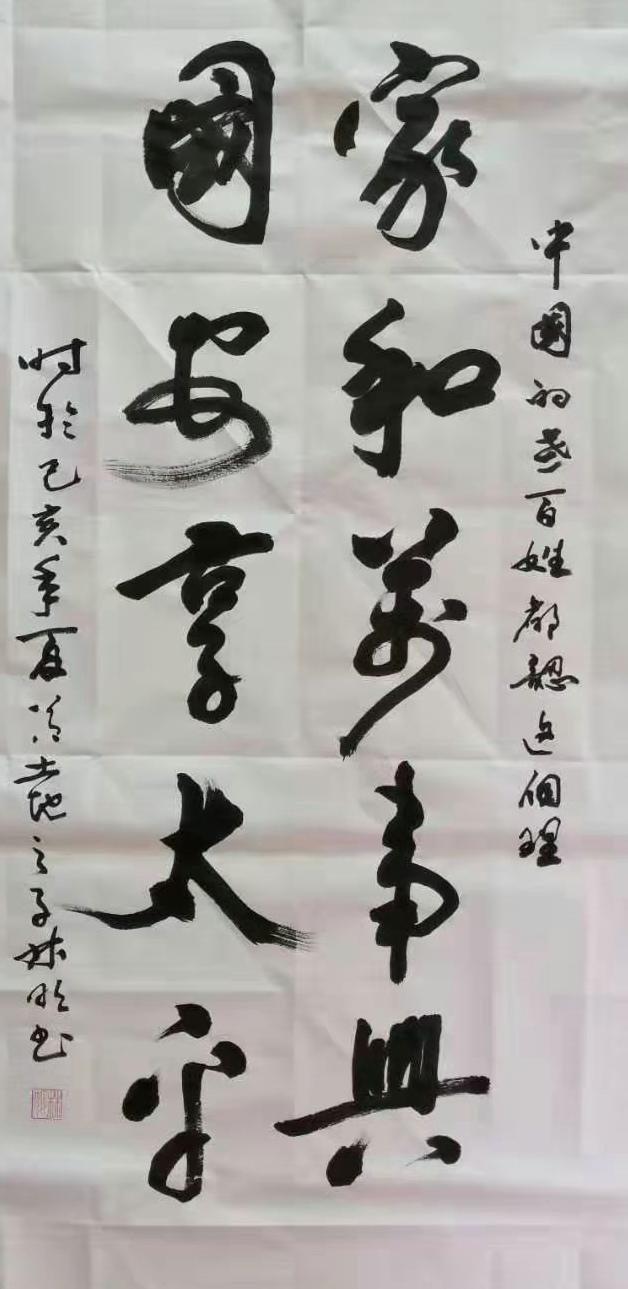 中國的老百姓都認这個理
家和萬事興
國安享太平
时於己亥年夏土地之子林书